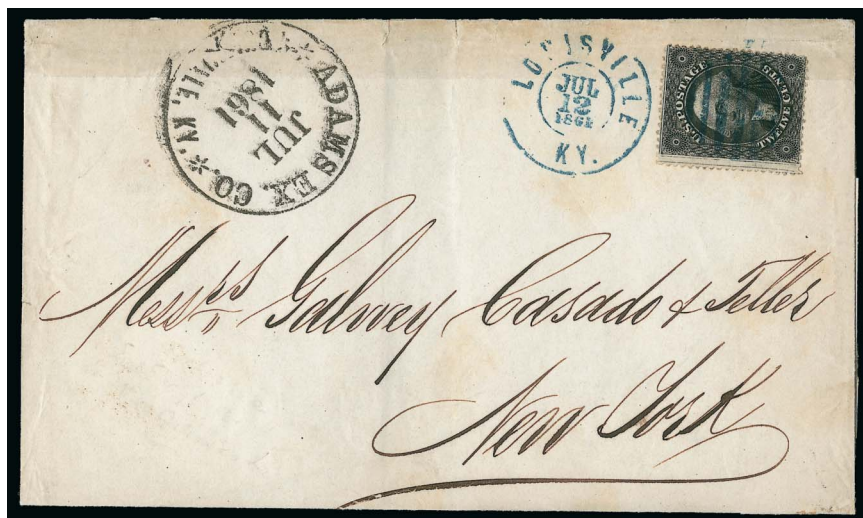 ADAMS EX. CO. * LOUISVILLE, KY. *
JUL
11
1861
LOUISVILLE
JUL
12
1861
KY.
U.S. POSTAGE
TWELVE CENTS
Messrs Galwey Casado & Teller
New York